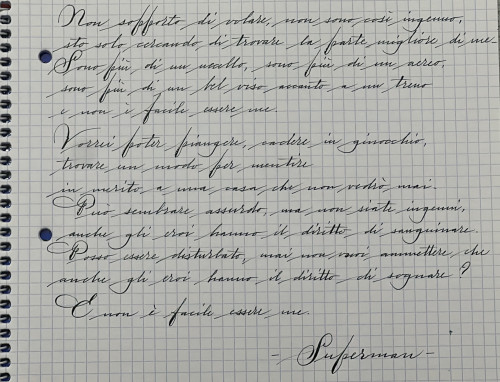 Non sopporto di volare, non sono così ingenuo,
sto solo cercando di trovare la parte migliore di me
Sono più di un uccello, sono più di un aereo,
sono più di un bel viso accanto a un treno
e non è facile essere me.
Vorrei poter piangere, cadere in ginocchio,
trovare un modo per mentire
in merito a una casa che non vedrò mai.
Può sembrare assurdo, ma non siate ingenui,
anche gli eroi hanno il diritto di sanguinare.
Posso essere disturbato, mai non vuoi ammettere che
anche gli eroi hanno il diritto di sognare?
E non è facile essere me.
- Superman -